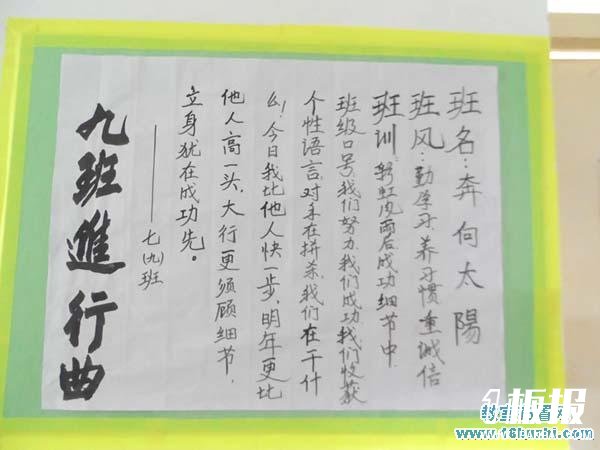 班名：奔向太陽
班风：勤学习 养习惯 重诚信
班训：彩虹风雨后 成功细节中
班级口号：我们努力，我们成功，我们收获
个性语言：对手在拼杀，我们在干什
么！今日我比他人快一步，明年更比
他人高一头，大行更须顾细节，
立身犹在成功先。
——七（九）班
九班進行曲
板报
www.16huzhi.com